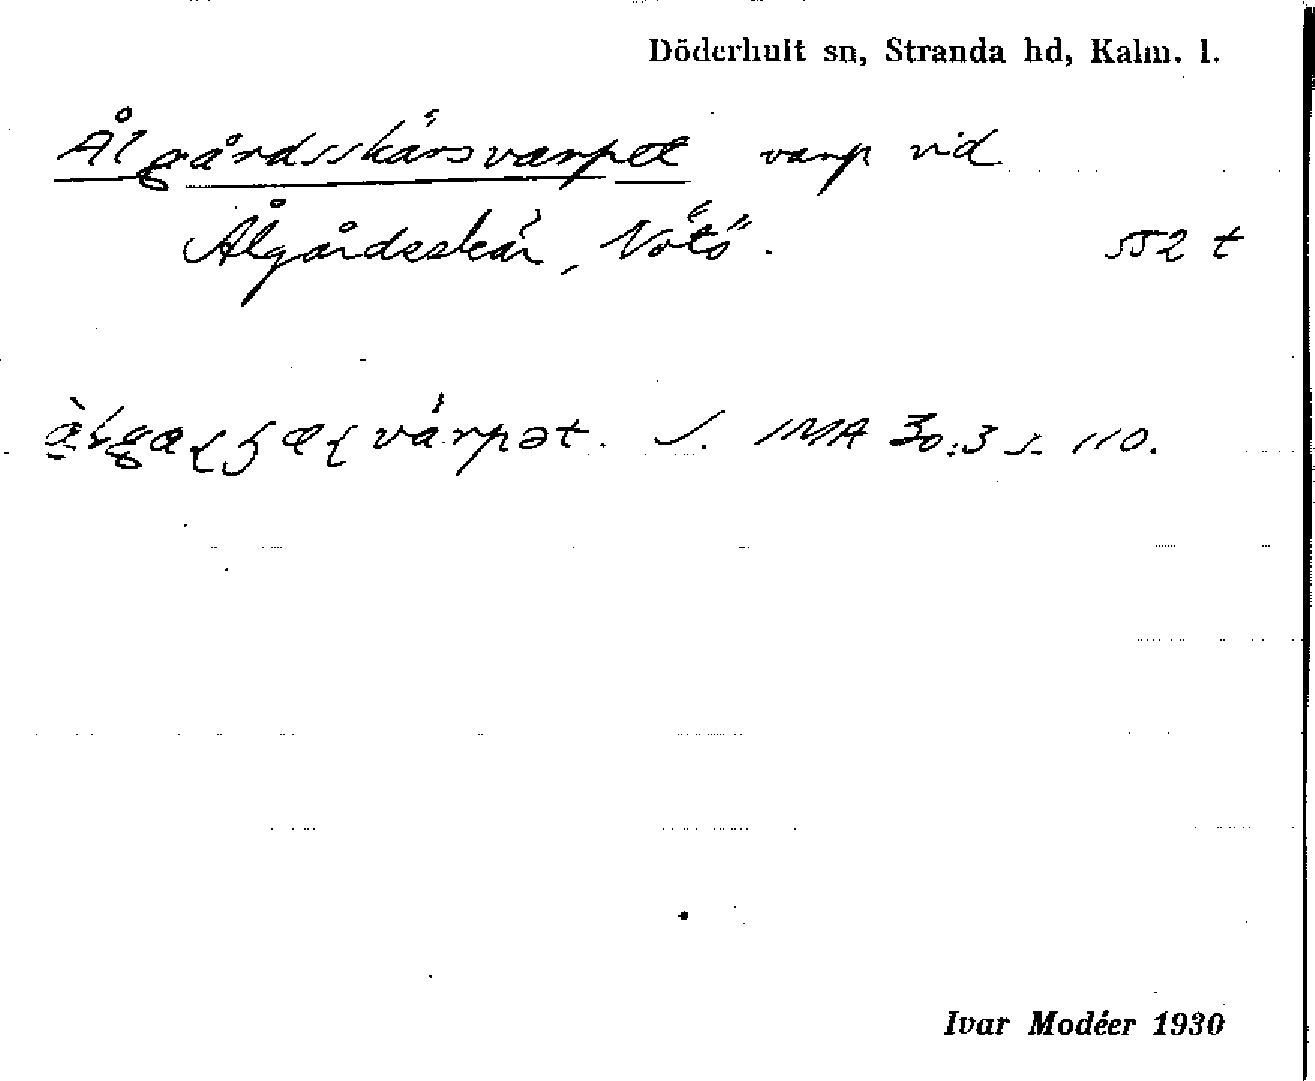 Döderhult sn, Stranda hd, Kalm. l.
Ålgårdsskärsvarpet varp vid
Ålgårdsskär, Vötö. 552 t
s. IMA 30:3 s. 110.
Ivar Modéer 1930